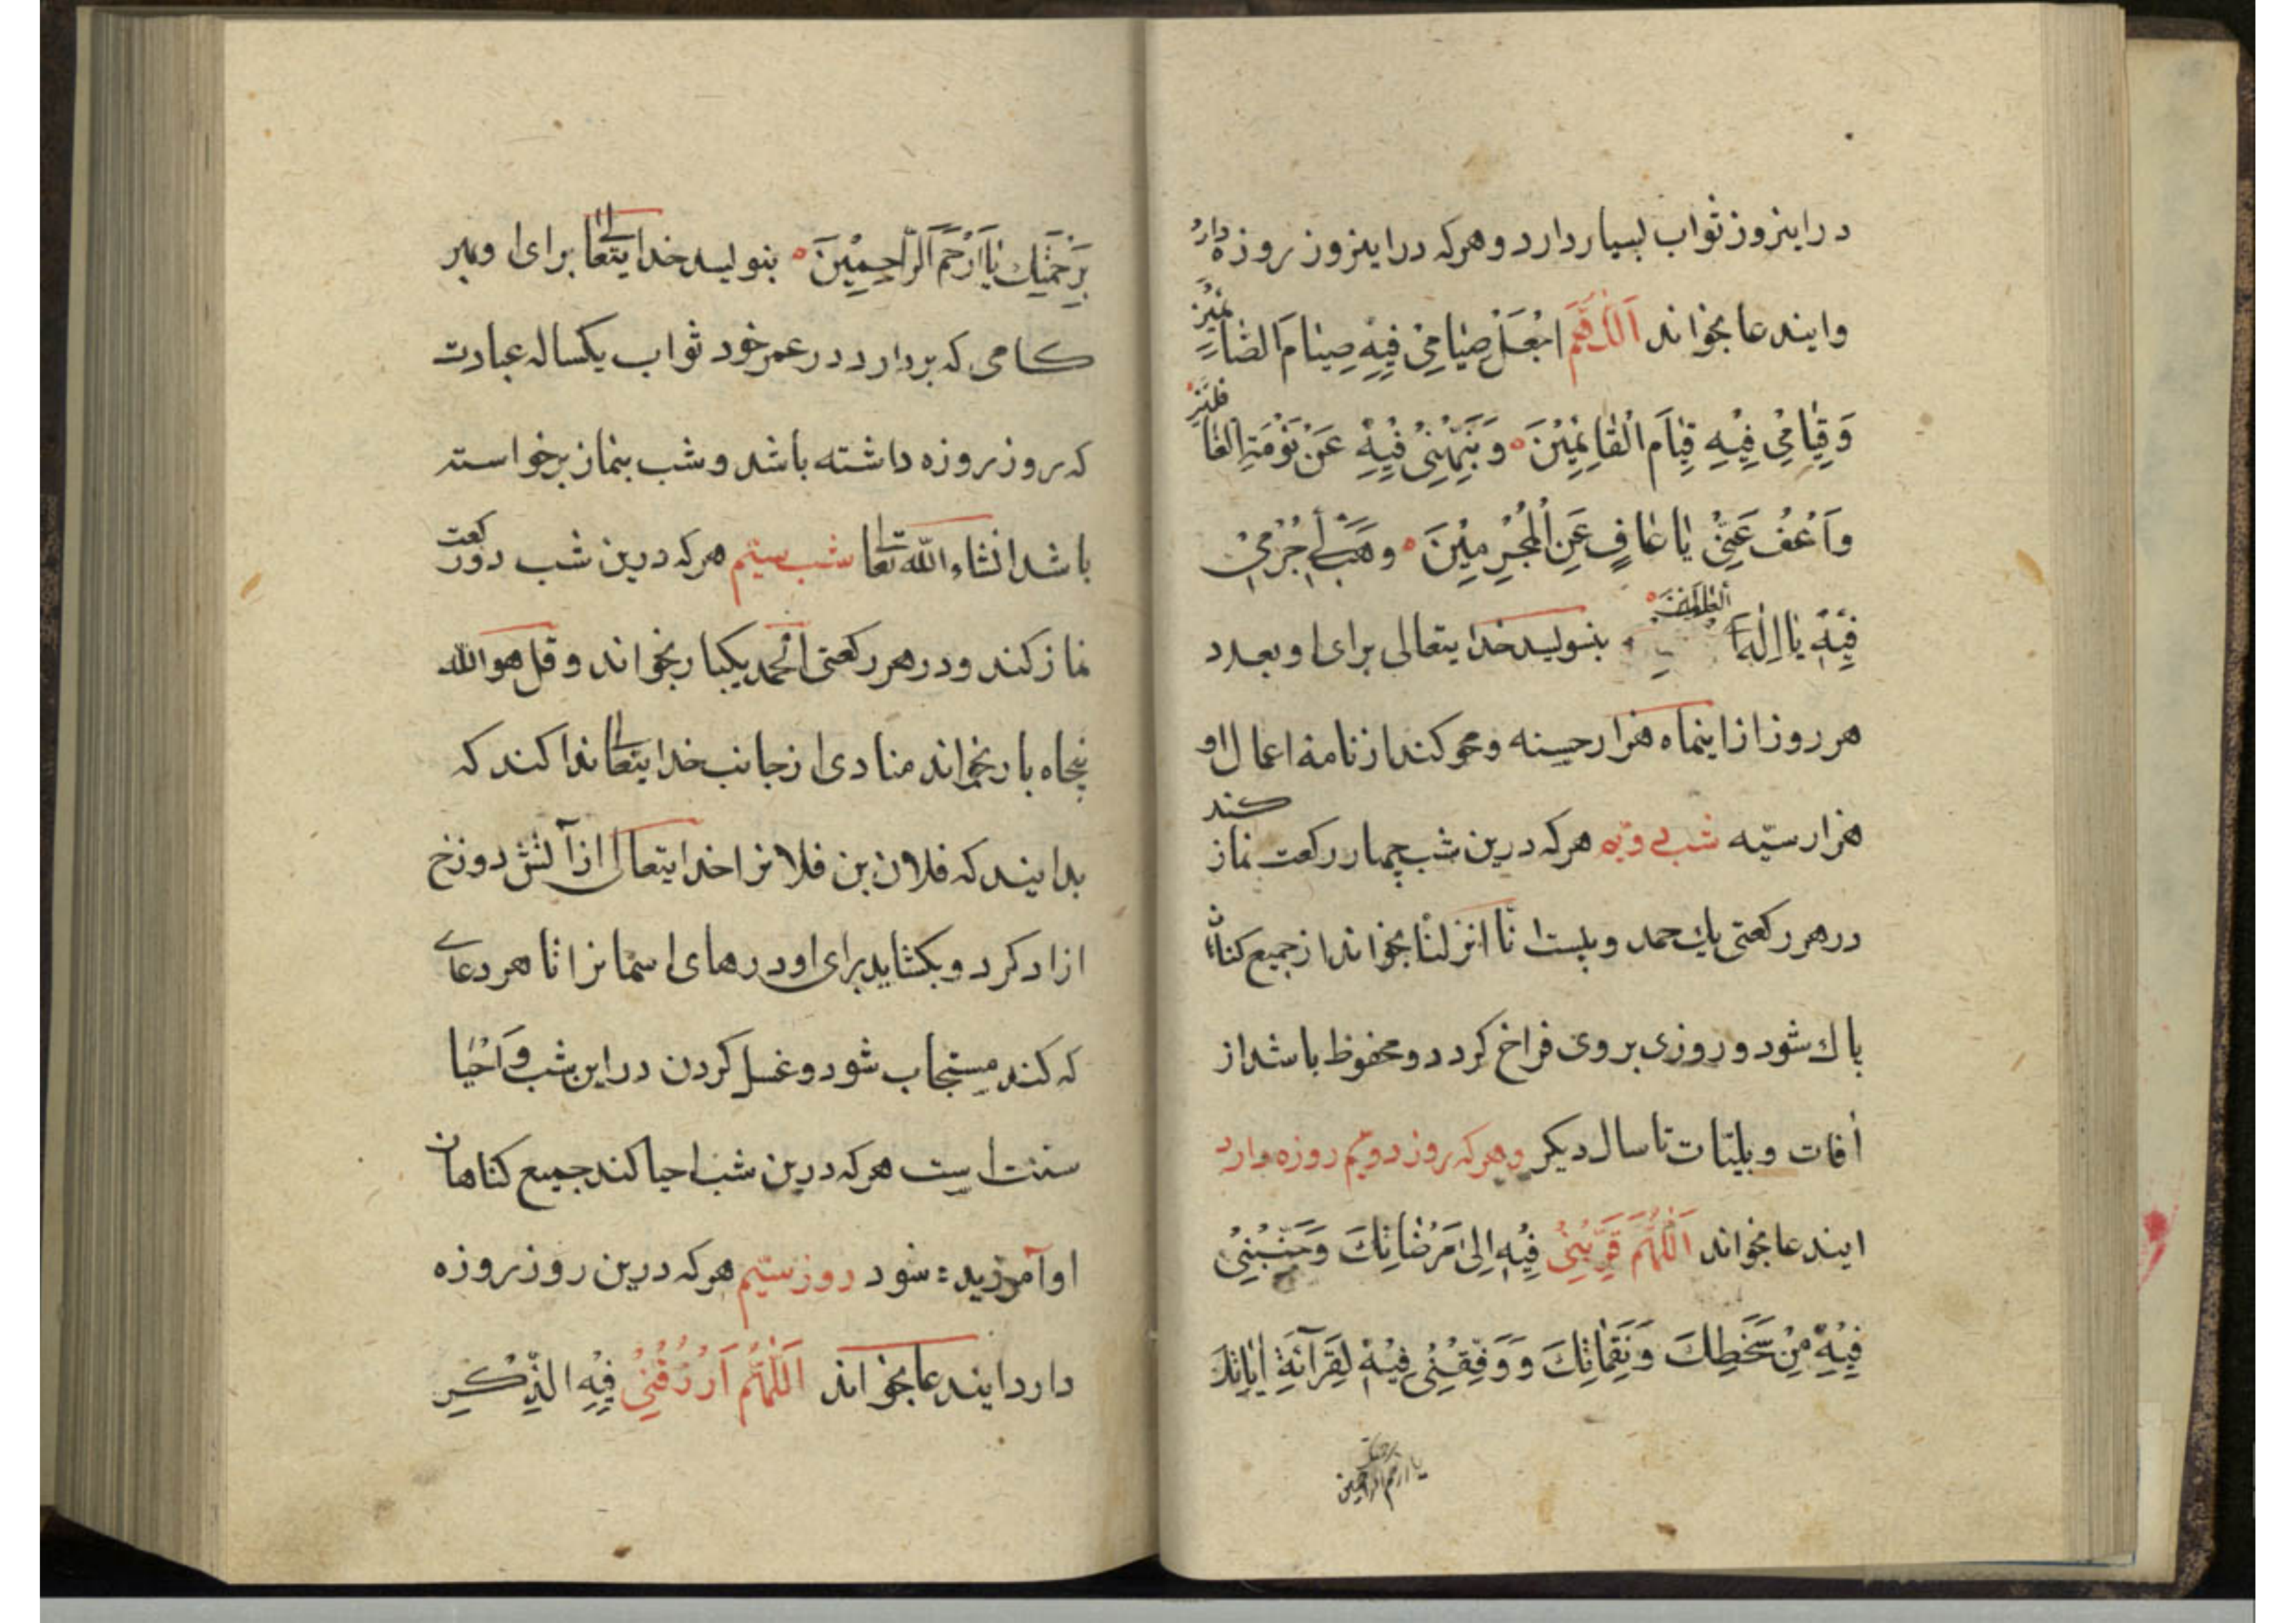 در اینروز ثواب بسیار دارد و هرکه در اینروز روزه دارد
و ایندعا بخواند اَللّهُمَّ اجْعَلْ صِیٰامِیْ فِیْهِ صِیٰامَ الصّٰائِمِیْنَ
وَ قِیٰامِیْ فِیْهِ قِیٰامَ الْقٰایِمِیْنَ وَ نَبِّهْنِیْ فِیْهِ عَنْ نَوْمَةِ الْغٰافِلِیْنَ
وَاعْفُ عَنِّیْ یٰا عٰافٍ عَنِ الْمُجْرِمِیْنَ وهَبْ لِیْ جُرْمِیْ
فِیْهِ یٰا اِلٰهَ الْعٰالَمِیْنَ بنویسد خدایتعالی برای او بعدد
هر روز از اینماه هزار حسنه و محو کند از نامهٔ اعمال او
هزار سیّه شب دویم هرکه درین شب چهار رکعت نماز کند
در هر رکعتی یك حمد و بیست انّا انزلنا بخواند از جمیع کناهان
پاك شود و روزی بر وی فراخ کردد و محفوظ باشد از
آفات و بلیّات تا سال دیکر و هرکه روز دویّم روزه دارد
ایندعا بخواند اَللّهُمَّ قَرِّبْنِیْ فِیْهِ اِلیٰ مَرْضٰاتِكَ وَجَنِّبْنِیْ
فِیْهِ مِنْ سَخَطِكَ وَنَقِمٰاتِكَ وَوَفِّقْنِیْ فِیْهِ لِقَرٰآئَةِ اٰیٰاتِكَ
برحمتك
یا ارحم الراحمین
بِرَحْمَتِكَ یٰا اَرْحَمَ الرّٰاحِمِیْنَ بنویسد خدایتعالی برای او بهر
کامی که بردارد در عمر خود ثواب یکساله عبادت
که روز روزه داشته باشد و شب بنماز برخواسته
باشد انشاء الله تعالی شب سیّم هرکه درین شب دو رکعت
نماز کند و در هر رکعتی الحمد یکبار بخواند و قل هو الله
پنجاه بار بخواند منادی از جانب خدایتعالی ندا کند که
بدانید که فلان بن فلانرا خدایتعالی از آتش دوزخ
ازاد کرد و بکشاید برای او درهای اسمانرا تا هر دعای
که کند مستجاب شود و غسل کردن در این شب وَاَحْیٰا
سنّت است هرکه درین شب احیا کند جمیع کناهان
او آمرزیده شود روز سیّم هرکه درین روز روزه
دارد ایندعا بخواند اَللّٰهُمَّ ارْزُقْنِیْ فِیْهِ الذِّکْرِ